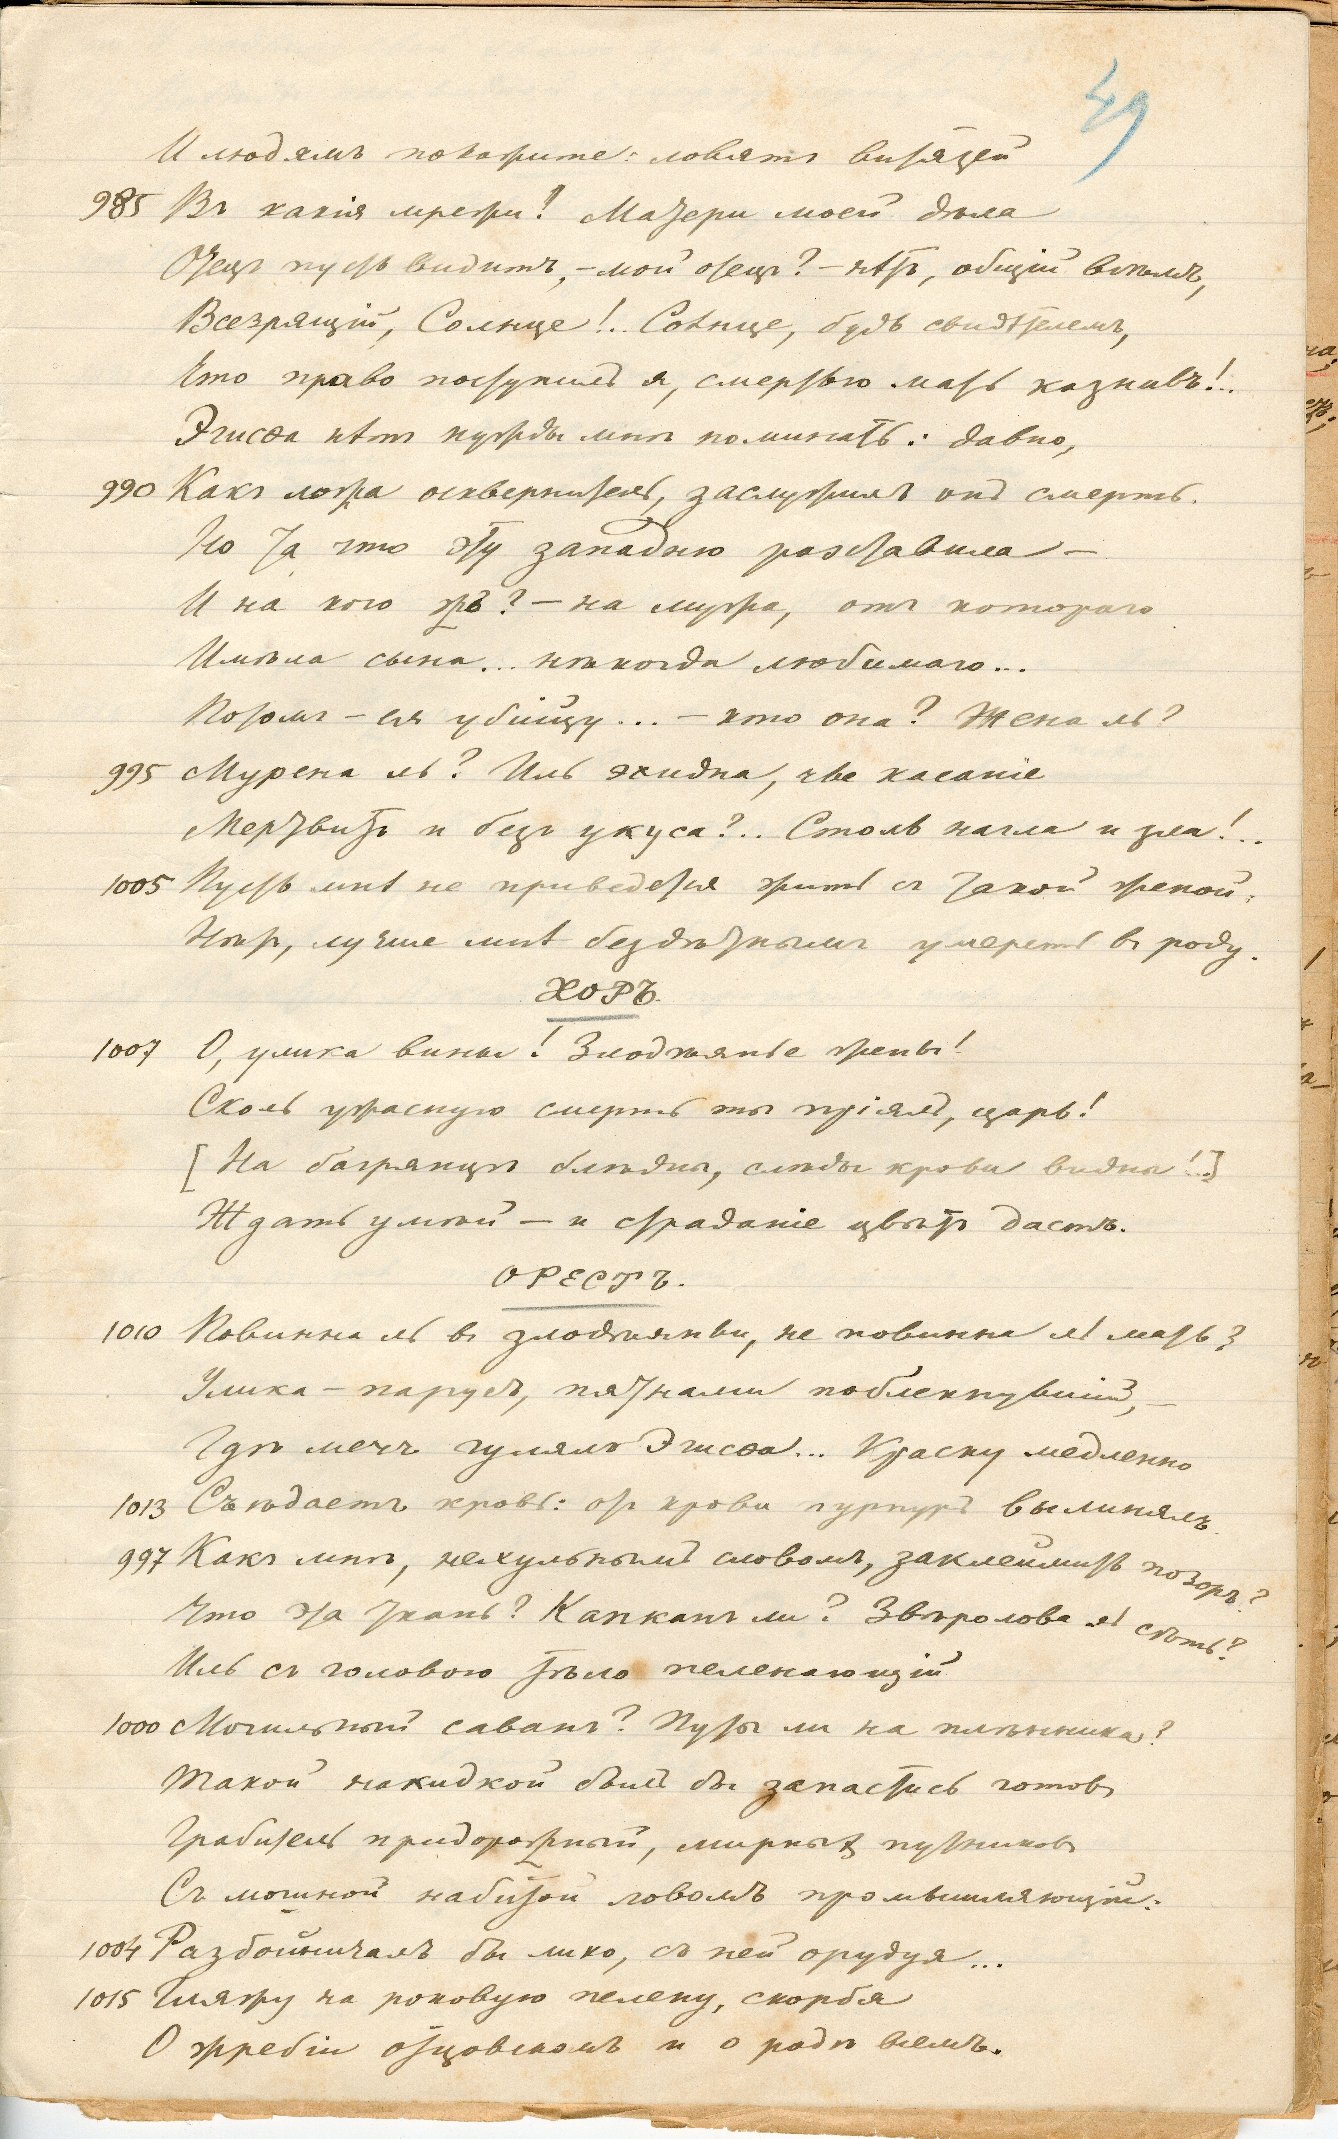 49
И людямъ покажите: ловятъ витязей
985 Въ какія мрежи! Матери моей дѣла
Отецъ пусть видитъ, – мой отецъ? – нѣтъ, общій всѣмъ,
Всезрящій, Солнце!.. Солнце, будь свидѣтелемъ,
Что право поступилъ я, смертью мать казнивъ!..
Эгисѳа нѣтъ нужды мнѣ поминать: давно,
990 Какъ ложа осквернитель, заслужилъ онъ смерть.
Но та что эту западню разставила –
И на кого жъ? – на мужа, отъ котораго
Имѣла сына... нѣкогда любимаго...
Потомъ – ея убійцу... – кто она? Жена ль?
995 Мурена ль? Иль эхидна, чье касаніе
Мертвитъ и безъ укуса?.. Столь нагла и зла!..
1005 Пусть мнѣ не приведется жить съ такой женой:
Нѣтъ, лучше мнѣ бездѣтнымъ умереть въ роду.
ХОРЪ.
1007 О, улика вины! Злодѣянье жены!
Сколь ужасную смерть ты пріялъ, царь!
[На багрянцѣ блѣдны, слѣды крови видны!..]
Ждать умѣй – и страданіе цвѣтъ дастъ.
ОРЕСТЪ.
1010 Повинна ль въ злодѣяньи, не повинна ль мать?
Улика – парусъ, пятнами поблекнувшій, –
Гдѣ мечъ гулялъ Эгисѳа... Краску медленно
1013 Съѣдаетъ кровь: отъ крови пурпуръ вылинялъ.
997 Какъ мнѣ, нехульнымъ словомъ, заклеймить позоръ?
Что эта ткань? Капканъ ли? Звѣролова ль сѣть?
Иль съ головою тѣло пеленающій
1000 Могильный саванъ? Путы ли на плѣнника?
Такой накидкой былъ бы запастись готовъ
Грабитель придорожный, мирныхъ путниковъ
Съ мошной набитой ловомъ промышляющій:
1004 Разбойничалъ бы лихо, съ ней орудуя...
1015 Гляжу на роковую пелену, скорбя
О жребіи отцовскомъ и о родѣ всемъ.